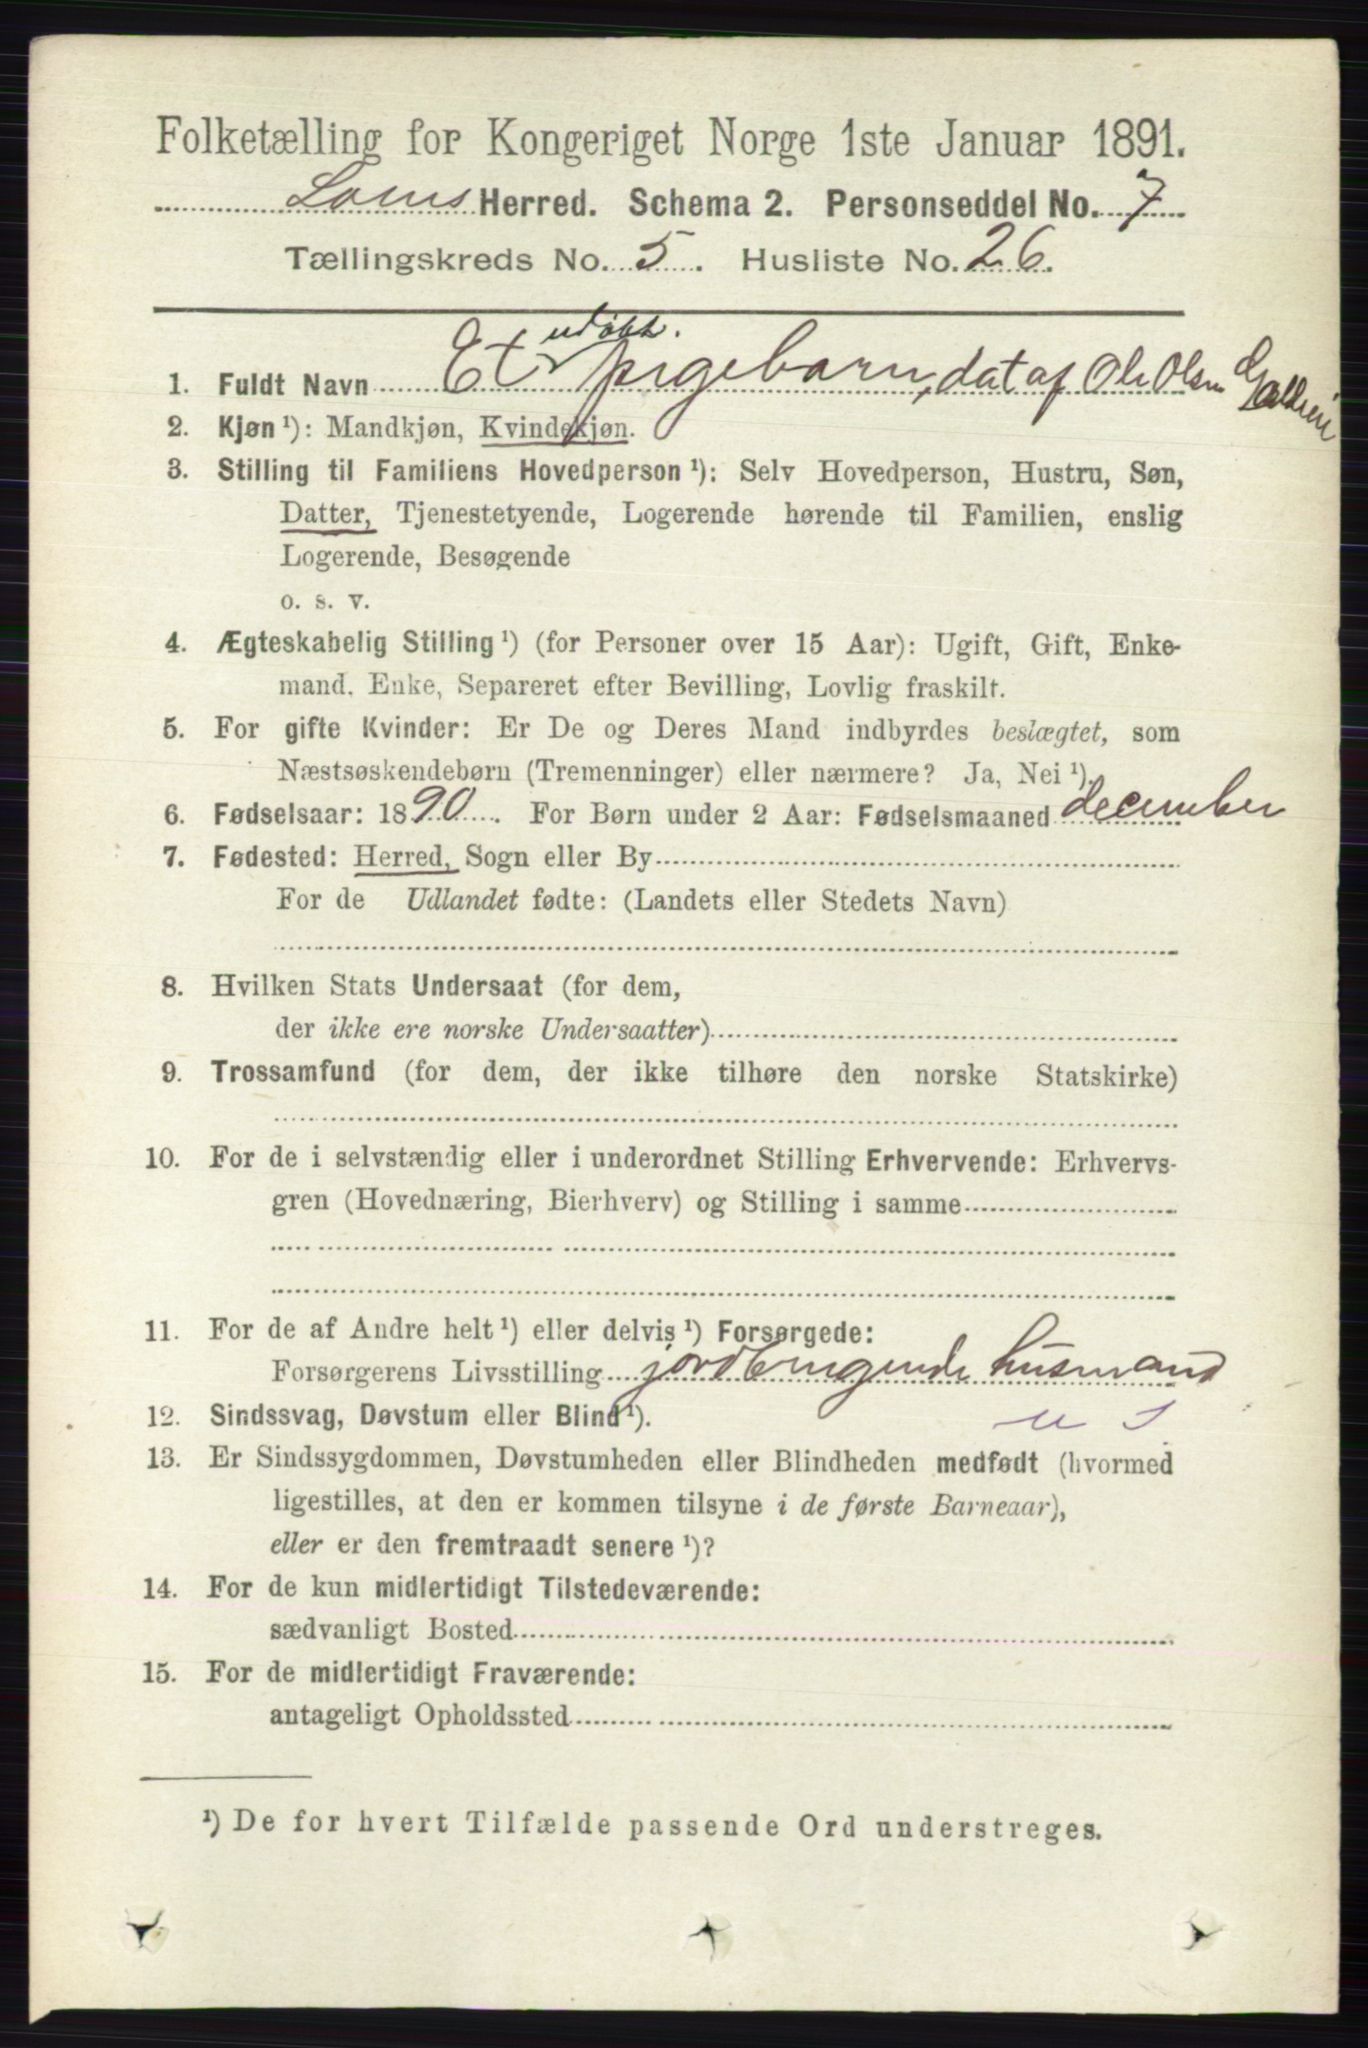 Folketælling for Kongeriget Norge 1ste Januar 1891.
Loms Herred. Schema 2. Personseddel No. 7
Tællingskreds No. 5. Husliste No. 26.
udøbt.
1. Fuldt Navn Et pigebarn, dat af Ole Olsen
2. Kjøn ¹): Mandkjøn, Kvindekjøn.
3. Stilling til Familiens Hovedperson ¹): Selv Hovedperson, Hustru, Søn,
Datter, Tjenestetyende, Logerende hørende til Familien, enslig
Logerende, Besøgende
o. s. v.
4. Ægteskabelig Stilling ¹) (for Personer over 15 Aar): Ugift, Gift, Enke-
mand, Enke, Separeret efter Bevilling, Lovlig fraskilt.
5. For gifte Kvinder: Er De og Deres Mand indbyrdes beslægtet, som
Næstsøskendebørn (Tremenninger) eller nærmere? Ja, Nei ¹).
6. Fødselsaar: 1890. For Børn under 2 Aar: Fødselsmaaned december
7. Fødested: Herred, Sogn eller By
For de Udlandet fødte: (Landets eller Stedets Navn)
8. Hvilken Stats Undersaat (for dem,
der ikke ere norske Undersaatter)
9. Trossamfund (for dem, der ikke tilhøre den norske Statskirke)
10. For de i selvstændig eller i underordnet Stilling Erhvervende: Erhvervs-
gren (Hovednæring, Bierhverv) og Stilling i samme
11. For de af Andre helt ¹) eller delvis ¹) Forsørgede:
Forsørgerens Livsstilling jordbrugende husmand
12. Sindssvag, Døvstum eller Blind ¹).
13. Er Sindssygdommen, Døvstumheden eller Blindheden medfødt (hvormed
ligestilles, at den er kommen tilsyne i de første Barneaar),
eller er den fremtraadt senere ¹)?
14. For de kun midlertidigt Tilstedeværende:
sædvanligt Bosted
15. For de midlertidigt Fraværende:
antageligt Opholdssted
¹) De for hvert Tilfælde passende Ord understreges.